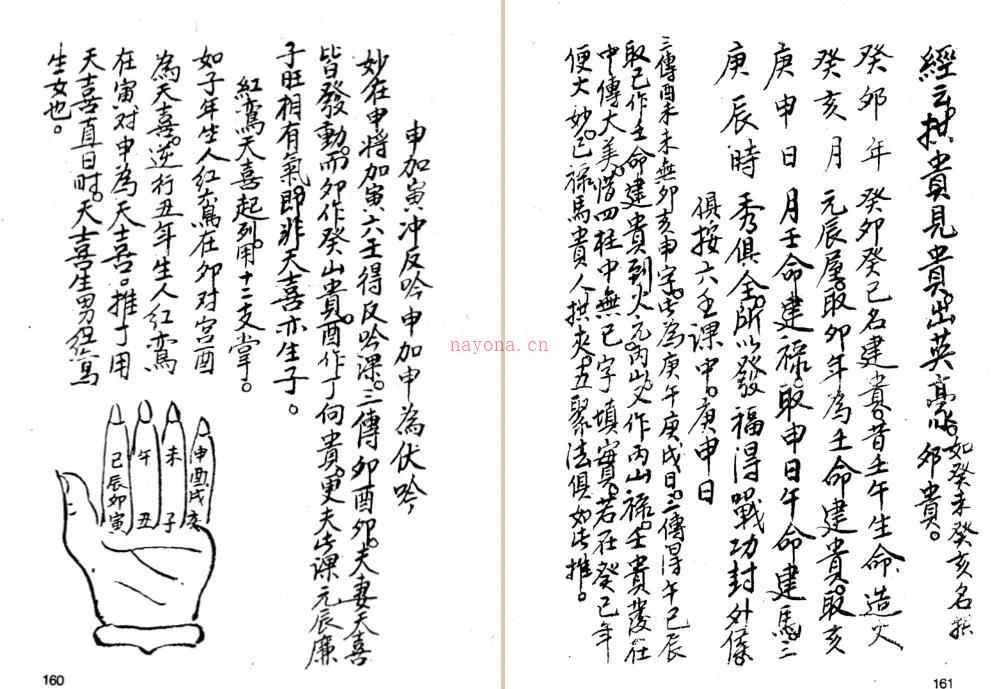 申加寅沖反吟申加申為伏吟
妙在申將加寅六壬得反吟課。三傳卯酉卯。夫妻天喜
皆發動。而卯作癸山貴。酉作丁向貴。更夫此課元辰廉
子旺相有氣。即非天喜亦生子。
紅鸞天喜起列。用十二支掌。
如子年生人紅鸞在卯对宮酉
為天喜。逆行丑年生人紅鸞
在寅对申為天喜。推丁用
天喜直日时。天喜生男紅鸞
生女也。
申酉戌亥
未
子
午
丑
巳辰卯寅
160
經云拱貴見貴。出英豪。如癸未癸亥名拱卯貴。
癸卯年癸卯癸巳名建貴。昔壬午生命造火
癸亥月元辰屋。取卯年為壬命建貴。取亥
庚申日月壬命建祿。取申日午命建馬。三
庚辰時秀俱全。所以發福得戰功封外候。
俱按六壬課中。庚申日
三傳酉未未無卯亥申字。此為庚午庚戌日。三傳得午巳辰
取巳作壬命建貴到火元。丙山。又作丙山祿。壬貴發在
中傳大美。惜四柱中無巳字填實。若在癸巳年
便大妙。巳祿馬貴人拱夾。十五聚法俱如此推。
161
nayona.cn